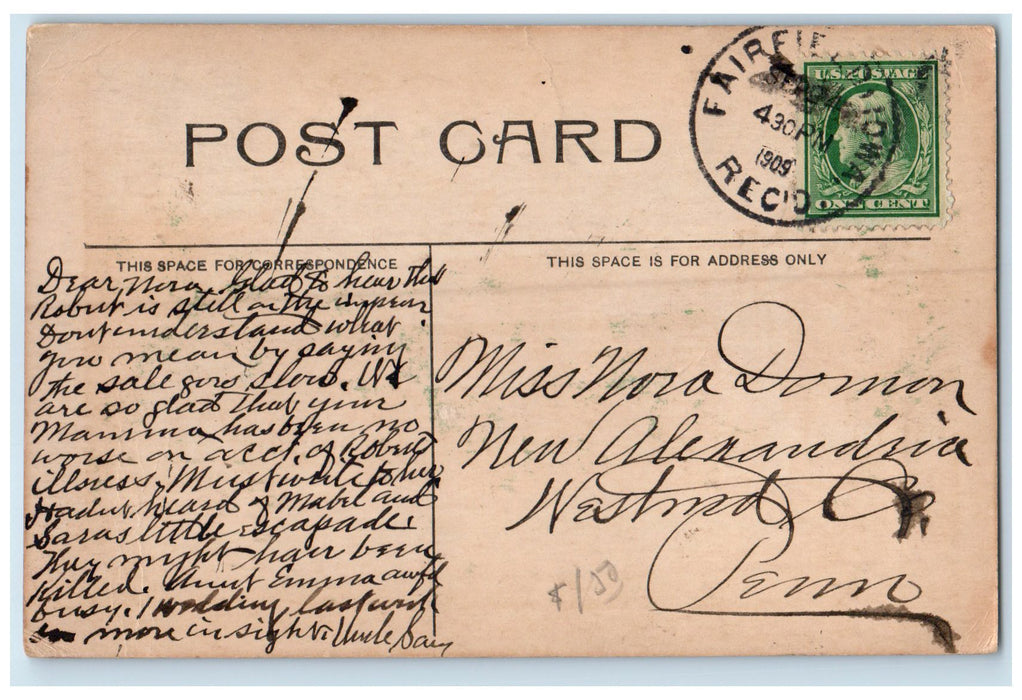 POST CARD
FAIRFIELD IOWA
SEP
4 30 PM
1909
REC'D
U.S. POSTAGE
ONE CENT
THIS SPACE FOR CORRESPONDENCE
THIS SPACE IS FOR ADDRESS ONLY
Dear Nora. Glad to hear that
Robert is still on the improve
Dont understand what
you mean by saying
the sale goes slow. We
are so glad that your
Mamma has been no
worse on acct. of Robert
illness. Must write to her
Hadn't heard of Mabel and
Saras little escapade.
They might have been
killed. Aunt Emma awful
busy. 1 wedding last week
more in sight. Uncle Sam
Miss Nora Domon
New Alexandria
Westmd Co.
Penn